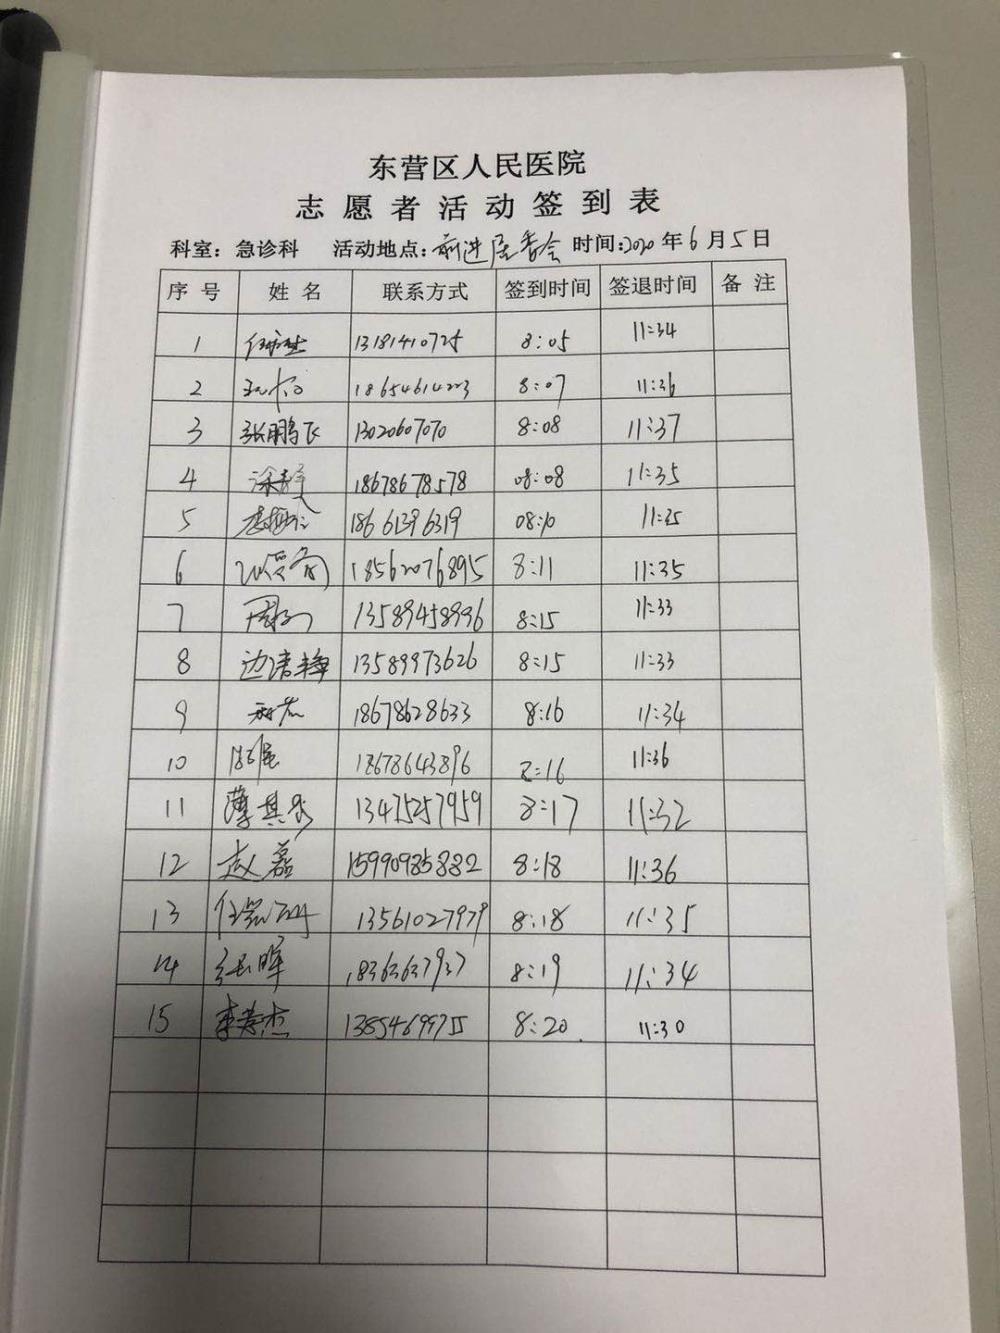 东营区人民医院
志愿者活动签到表
科室：急诊科 活动地点：前进居委会 时间：2020年6月5日
序号 姓名 联系方式 签到时间 签退时间 备注
1 13181410725 8:05 11:34
2 18654614223 8:07 11:36
3 张鹏飞 13020607070 8:08 11:37
4 涂静 18678678578 08:08 11:35
5 18661396319 08:10 11:35
6 18562076895 8:11 11:35
7 13589458936 8:15 11:33
8 边清峰 13589973626 8:15 11:33
9 18678628633 8:16 11:34
10 18678643896 8:16 11:36
11 薄其乐 13475257959 8:17 11:32
12 赵磊 15990985882 8:18 11:36
13 13561027979 8:18 11:35
14 张晖 18363637937 8:19 11:34
15 李孝杰 8:20 11:30